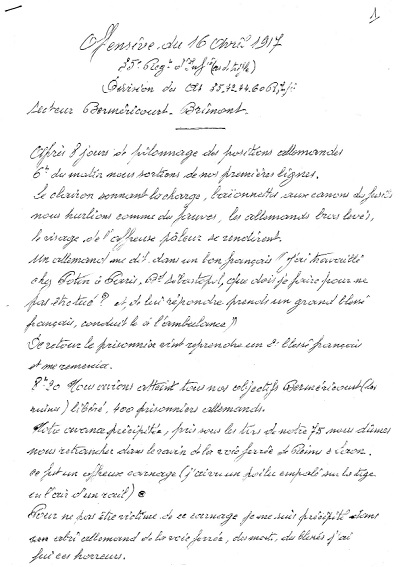 1
Offensive du 16 Avril 1917
35e Regt d'Infie (as de trèfle)
Division des As 35.42.44.60 R.I.
Secteur Berméricourt - Brimont.
Après 8 jours de pilonnage des positions allemandes
6h du matin nous sortions de nos premières lignes.
Le clairon sonnant la charge, baïonnettes aux canons des fusils
nous hurlions comme des fauves, les allemands bras levés,
le visage de l'affreuse pâleur se rendirent.
Un allemand me dit dans un bon français "J'ai travaillé
chez Potin à Paris, Bd Sébastopol, que dois-je faire pour ne
pas être tué ? et de lui répondre prends un grand blessé
français, conduit le à l'ambulance"
De retour le prisonnier vint reprendre un 2e blessé français
et me remercia.
8h30 Nous avions atteint tous nos objectifs Berméricourt (des
ruines) libéré, 400 prisonniers allemands.
Notre avance précipitée, pris sous les tirs de notre 75 nous dûmes
nous retrancher dans le ravin de la voie ferrée de Reims à Laon.
ce fut un affreux carnage (j'ai vu un poilu empalé sur les tige
en l'air d'un rail)
Pour ne pas être victime de ce carnage je me suis précipité dans
un abri allemand de la voie ferrée, des morts, des blessés j'ai
fui ces horreurs.